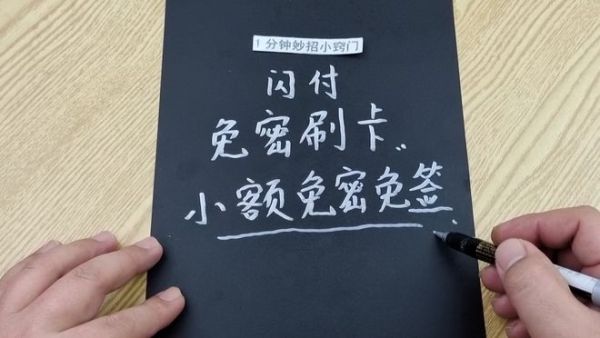 1分钟妙招小窍门
闪付
免密刷卡..
小额免密免签.